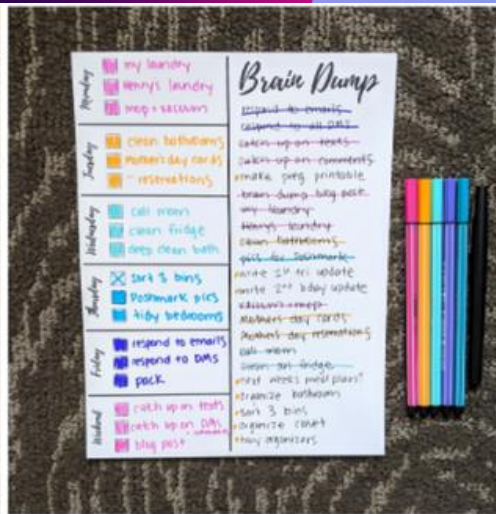 Monday
my laundry
Henry's laundry
mop + vacuum
Tuesday
clean bathrooms
Mother's day cards
" reservations
Wednesday
call mom
clean fridge
deep clean bath
Thursday
sort 3 bins
Poshmark pics
tidy bedrooms
Friday
respond to emails
respond to DMS
pack
Weekend
catch up on texts
catch up on DMs
blog post
Brain Dump
respond to emails
respond to all DMS
catch up on texts
catch up on comments
make preg printable
brain dump blog pack
my laundry
Henry's laundry
clean bathrooms
pics for Poshmark
write 1st tri update
write 2nd bday update
vacuum + mop
Mothers day cards
Mothers day reservations
call mom
clean out fridge
next weeks meal plans?
organize bathroom
sort 3 bins
organize closet
toy organizers